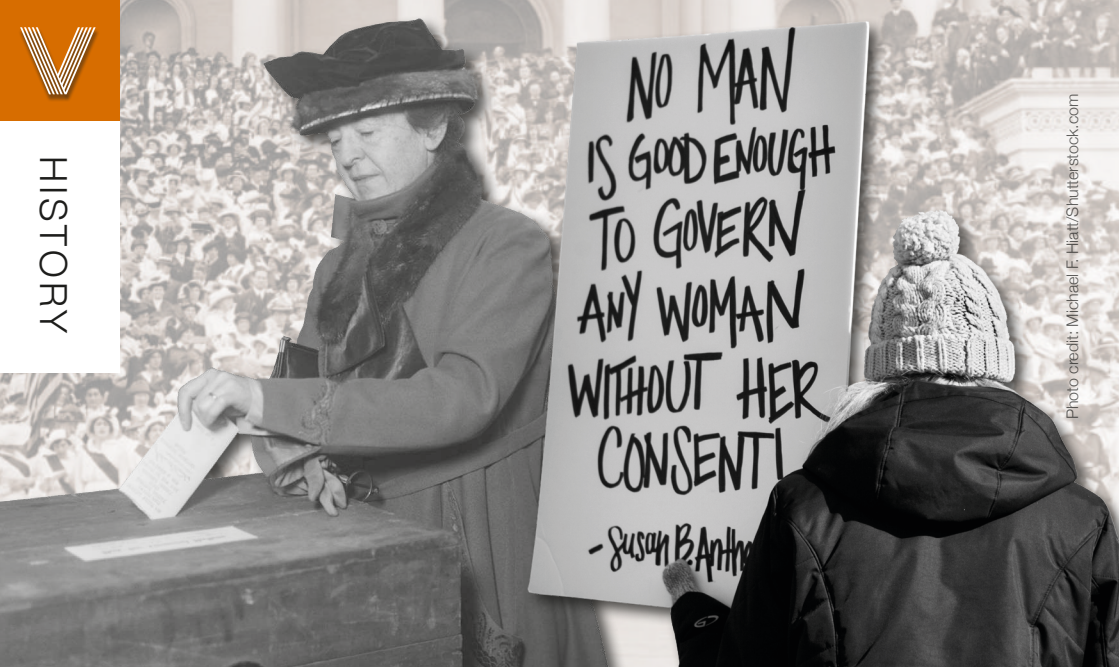 V
HISTORY
NO MAN
IS GOOD ENOUGH
TO GOVERN
ANY WOMAN
WITHOUT HER
CONSENT!
- Susan B. Antho
Photo credit: Michael F. Hiatt/Shutterstock.com